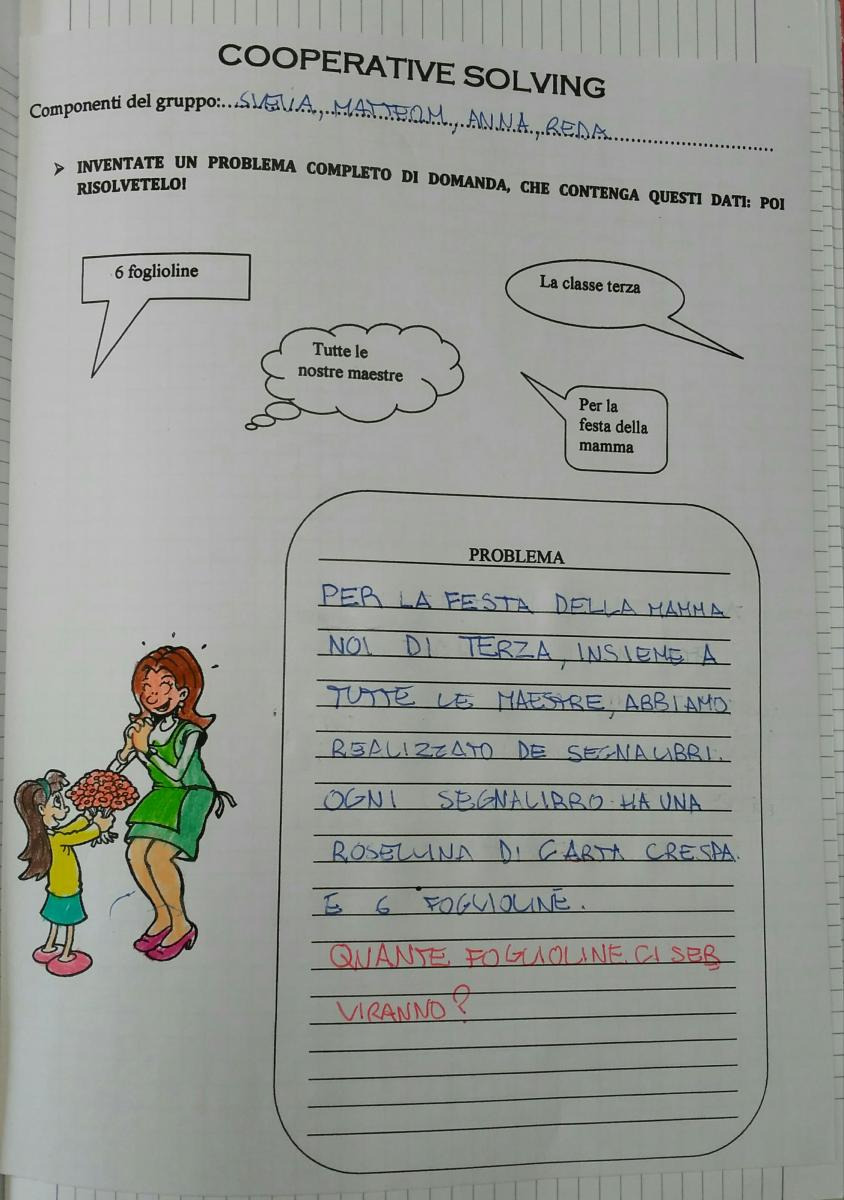 COOPERATIVE SOLVING
Componenti del gruppo:...SVEVA, MATTEOM, ANNA, REDA
➤ INVENTATE UN PROBLEMA COMPLETO DI DOMANDA, CHE CONTENGA QUESTI DATI: POI
RISOLVETELO!
6 foglioline
La classe terza
Tutte le
nostre maestre
Per la
festa della
mamma
PROBLEMA
PER LA FESTA DELLA MAMMA
NOI DI TERZA, INSIEME A
TUTTE LE MAESTRE, ABBIAMO
REALIZZATO DE SEGNALIBRI.
OGNI SEGNALIBRO HA UNA
ROSELLINA DI CARTA CRESPA
E 6 FOGLIOLINE.
QUANTE FOGLIOLINE CI SER
VIRANNO?